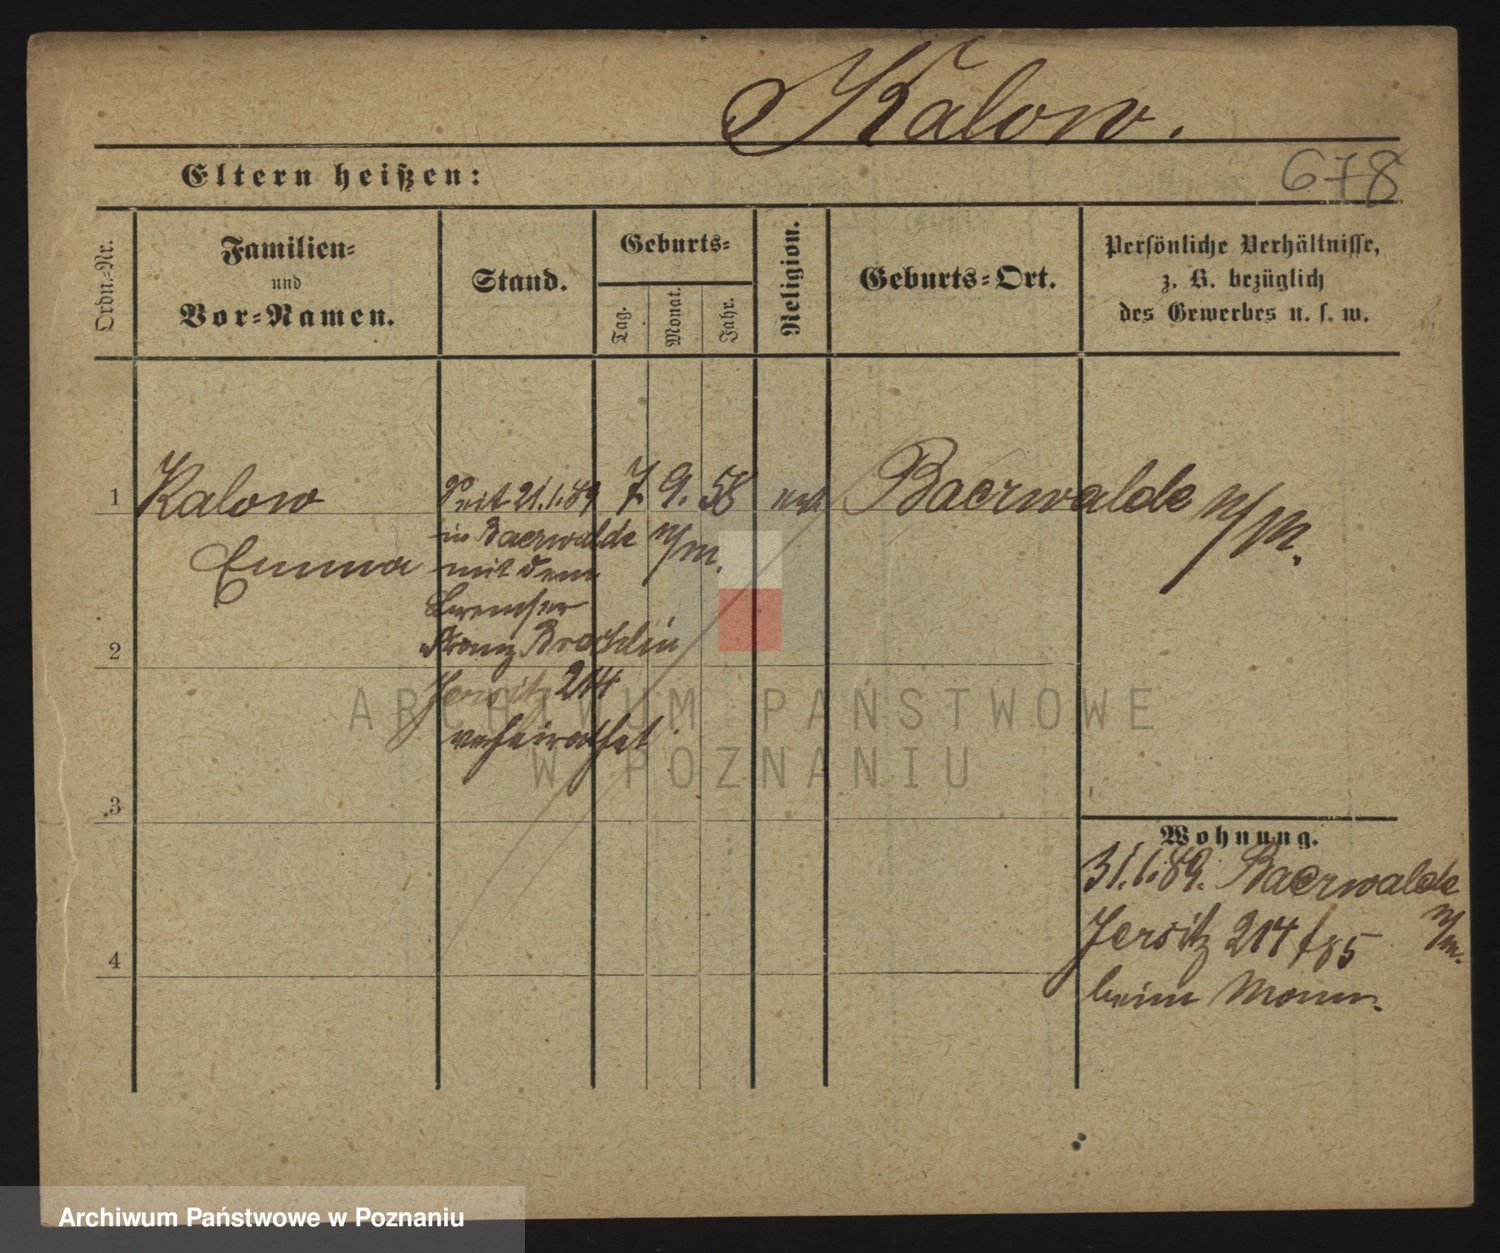 Kalow.
678
Eltern heißen:
Ordn.-Nr.
Familien-
und
Vor-Namen.
Stand.
Geburts-
Tag.
Monat.
Jahr.
Religion.
Geburts-Ort.
Persönliche Verhältnisse,
z. B. bezüglich
des Gewerbes u. s. w.
1 Kalow
Emma
Seit 21.1.89
in Baerwalde n/m.
mit dem
Franz
Jersitz 214
verheirathet
7. 9. 58
Baerwalde n/M.
2
3
4
Wohnung.
31.1.89. Baerwalde
n/m.
Jersitz 214
beim Mann.
ARCHIWUM PAŃSTWOWE
W POZNANIU
Archiwum Państwowe w Poznaniu